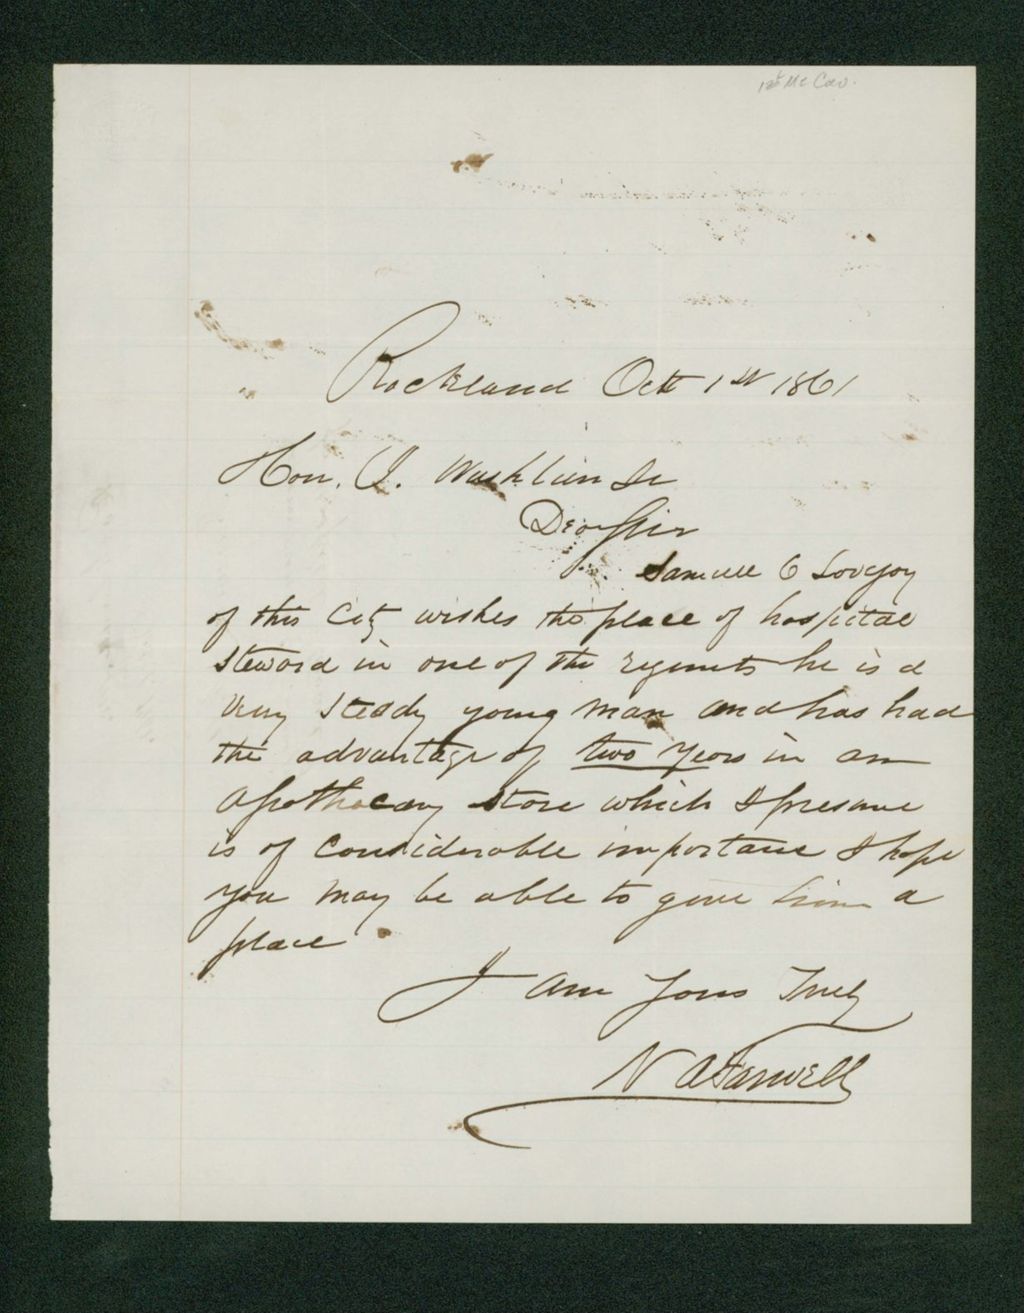 1st Me Cav.
Rockland Oct 1st 1861
Hon. I. Washburn Jr
Dear Sir
Samuel C Lovejoy
of this City wishes the place of hospital
Steward in one of the regiments he is a
very steady young man and has had
the advantage of two years in an
Apothecary store which I presume
is of considerable importance I hope
you may be able to give him a
place
I am Yours Truly
N A Farwell